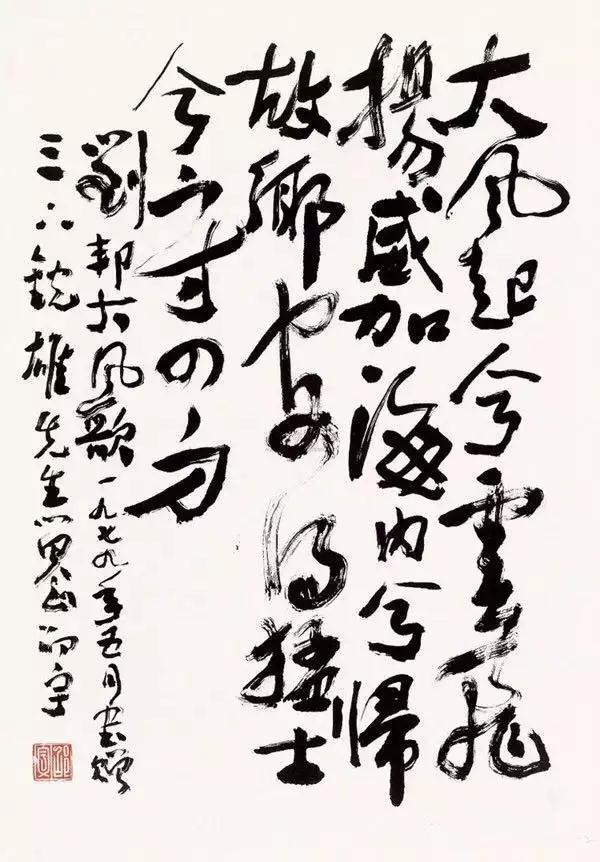 大風起兮雲飛
揚威加海内兮歸
故鄉安得猛士
兮守四方
劉邦大風歌一九七九年五月書贈
三六銳雄先生 正 邵宇
邵宇